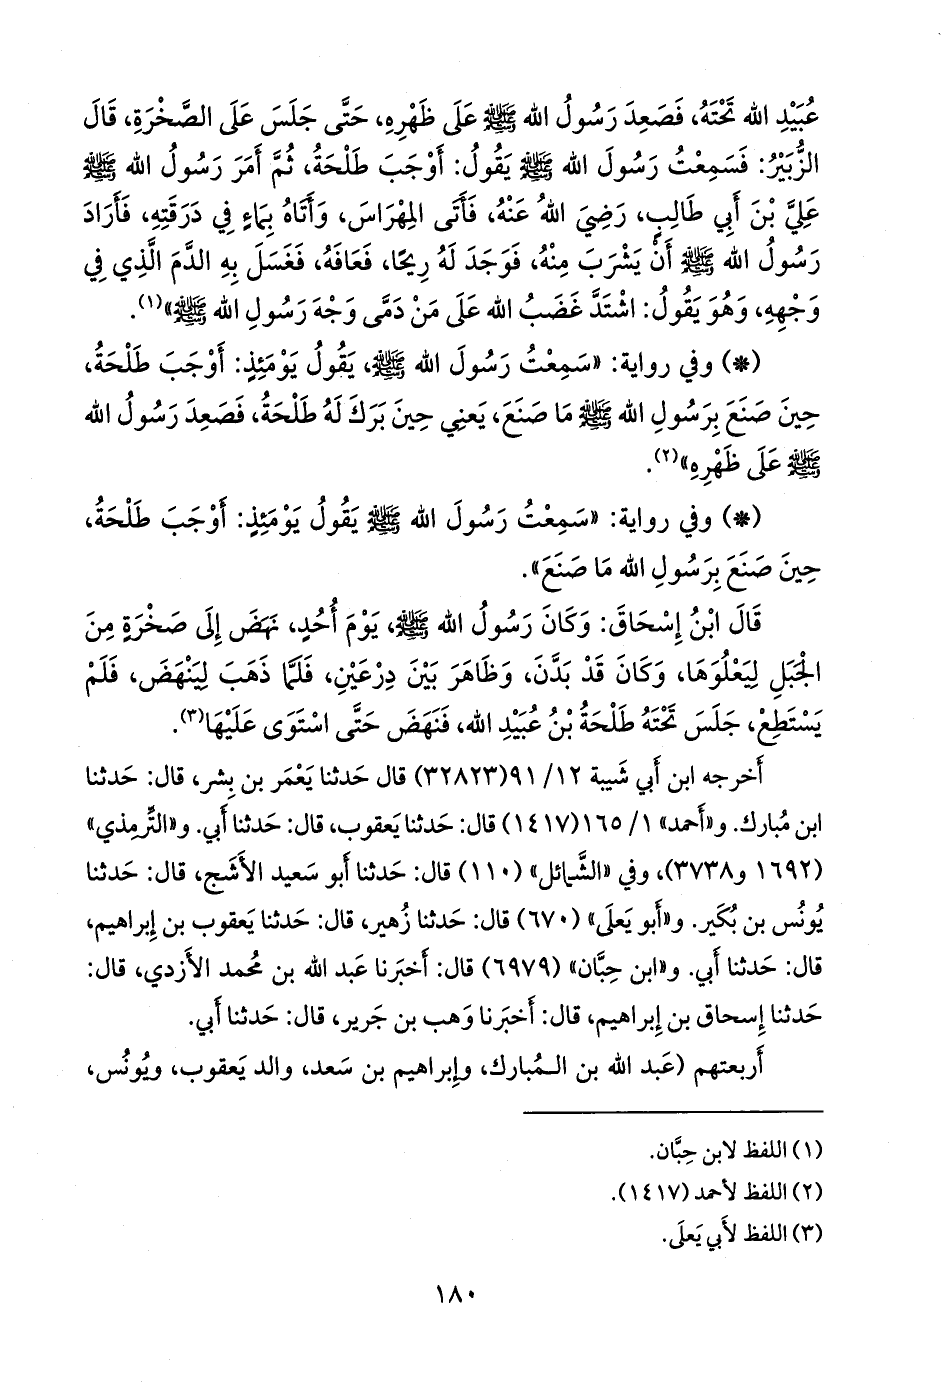 عُبَيْدِ الله تَحْتَهُ، فَصَعِدَ رَسُولُ الله ﷺ عَلَى ظَهْرِهِ، حَتَّى جَلَسَ عَلَى الصَّخْرَةِ، قَالَ
الزُّبَيْرُ: فَسَمِعْتُ رَسُولَ الله ﷺ يَقُولُ: أَوْجَبَ طَلْحَةُ، ثُمَّ أَمَرَ رَسُولُ الله ﷺ
عَلِيَّ بْنَ أَبِي طَالِبٍ، رَضِيَ اللهُ عَنْهُ، فَأَتَى المِهْرَاسَ، وَأَتَاهُ بِمَاءٍ فِي دَرَقَتِهِ، فَأَرَادَ
رَسُولُ الله ﷺ أَنْ يَشْرَبَ مِنْهُ، فَوَجَدَ لَهُ رِيحًا، فَعَافَهُ، فَغَسَلَ بِهِ الدَّمَ الَّذِي فِي
وَجْهِهِ، وَهُوَ يَقُولُ: اشْتَدَّ غَضَبُ الله عَلَى مَنْ دَمَّى وَجْهَ رَسُولِ الله ﷺ»(١).
(*) وفي رواية: «سَمِعْتُ رَسُولَ الله ﷺ، يَقُولُ يَوْمَئِذٍ: أَوْجَبَ طَلْحَةُ،
حِينَ صَنَعَ بِرَسُولِ الله ﷺ مَا صَنَعَ، يَعنِي حِينَ بَرَكَ لَهُ طَلْحَةُ، فَصَعِدَ رَسُولُ الله
ﷺ عَلَى ظَهْرِهِ»(٢).
(*) وفي رواية: «سَمِعْتُ رَسُولَ الله ﷺ يَقُولُ يَوْمَئِذٍ: أَوْجَبَ طَلْحَةُ،
حِينَ صَنَعَ بِرَسُولِ الله مَا صَنَعَ».
قَالَ ابْنُ إِسْحَاقَ: وَكَانَ رَسُولُ الله ﷺ، يَوْمَ أُحُدٍ، نَهَضَ إِلَى صَخْرَةٍ مِنَ
الجَبَلِ لِيَعْلُوَهَا، وَكَانَ قَدْ بَدَّنَ، وَظَاهَرَ بَيْنَ دِرْعَيْنِ، فَلَمَّا ذَهَبَ لِيَنْهَضَ، فَلَمْ
يَسْتَطِعْ، جَلَسَ تَحْتَهُ طَلْحَةُ بْنُ عُبَيْدِ الله، فَنَهَضَ حَتَّى اسْتَوَى عَلَيْهَا(٣).
أَخرجه ابن أَبي شَيبة ١٢/ ٩١(٣٢٨٢٣) قال حَدثنا يَعْمَر بن بِشر، قال: حَدثنا
ابن مُبارك. و«أَحمد» ١/ ١٦٥(١٤١٧) قال: حَدثنا يَعقوب، قال: حَدثنا أَبي. و«التِّرمِذي»
(١٦٩٢ و٣٧٣٨)، وفي «الشَّمائل» (١١٠) قال: حَدثنا أَبو سَعيد الأَشَج، قال: حَدثنا
يُونُس بن بُكَير. و«أَبو يَعلَى» (٦٧٠) قال: حَدثنا زُهير، قال: حَدثنا يَعقوب بن إِبراهيم،
قال: حَدثنا أَبي. و«ابن حِبَّان» (٦٩٧٩) قال: أَخبَرنا عَبد الله بن مُحمد الأَزدي، قال:
حَدثنا إِسحاق بن إِبراهيم، قال: أَخبَرنا وَهب بن جَرير، قال: حَدثنا أَبي.
أَربعتهم (عَبد الله بن الـمُبارك، وإِبراهيم بن سَعد، والد يَعقوب، ويُونُس،
(١) اللفظ لابن حِبَّان.
(٢) اللفظ لأَحمد (١٤١٧).
(٣) اللفظ لأَبي يَعلَى.
١٨٠